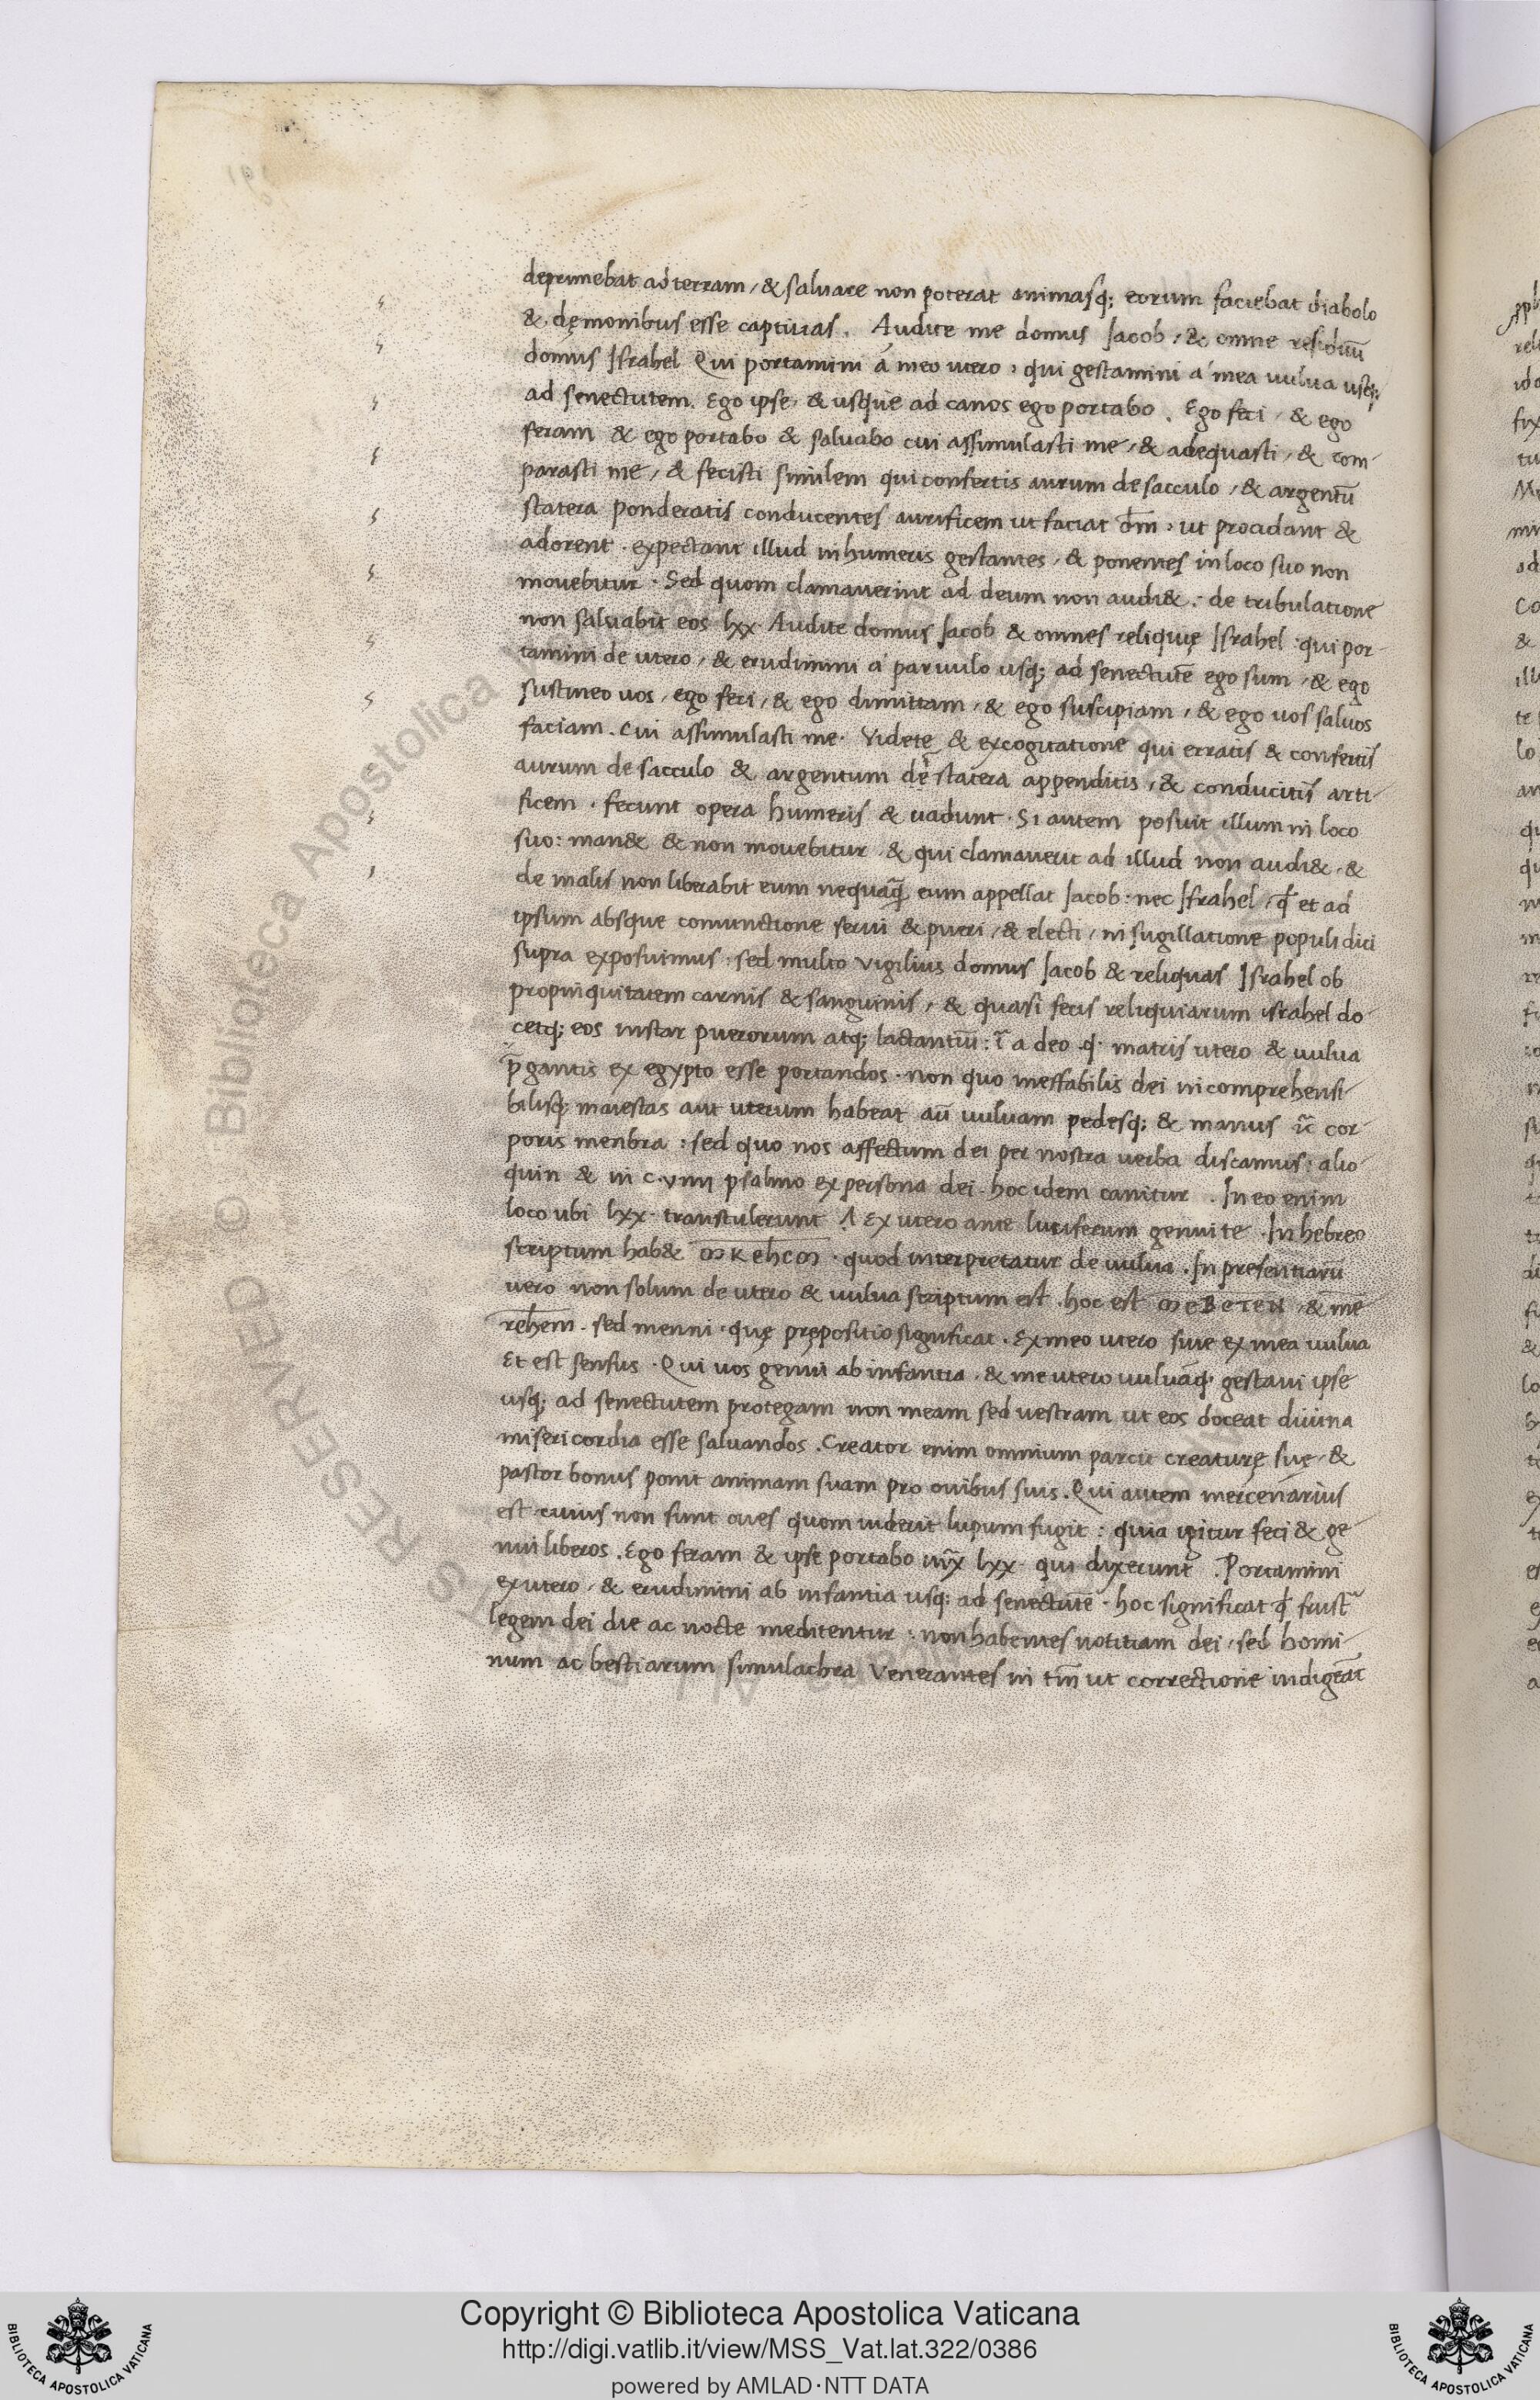 deprimebat ad terram, & saluare non poterat animasq; eorum faciebat diabolo
& dęmonibus esse captiuas. Audite me domus Jacob, & omne residuū
domus Israhel Qui portamini a meo utero, qui gestamini a mea uulua usq;
ad senectutem. Ego ipse, & usque ad canos ego portabo. Ego feci, & ego
feram & ego portabo & saluabo cui assimulasti me, & adequasti, & com-
parasti me, & fecisti similem qui confertis aurum de sacculo, & argentū
statera ponderatis conducentes aurificem ut faciat dm̄, ut procidant &
adorent. expectant illud in humeris gestantes, & ponentes in loco suo non
mouebitur. Sed quom clamauerint ad deum non audi&: de tribulatione
non saluabit eos lxx. Audite domus Jacob & omnes reliquię Israhel: qui por-
tamini de utero, & erudimini a paruulo usq; ad senectutē ego sum, & ego
sustineo uos, ego feci, & ego dimittam, & ego suscipiam, & ego uos saluos
faciam. Cui assimulasti me. Videte & excogitatione qui erratis & confertis
aurum de sacculo & argentum de statera appenditis, & conducitis arti-
ficem. fecunt opera humeris & uadunt. Si autem posuit illum in loco
suo: man& & non mouebitur. & qui clamauerit ad illud non audi&. &
de malis non liberabit eum nequaq̄ eum appellat Jacob: nec Israhel, qđ et ad
ipsum absque coniunctione serui & pueri, & electi, in sugillatione populi dici
supra exposuimus: sed multo vigilius domus Jacob & reliquas Israhel ob
propinquitatem carnis & sanguinis, & quasi fecis reliquiarum israhel do-
cetq; eos instar puerorum atq; lactantiū: ī a deo .q. matris utero & uulua
p̄gantis ex egypto esse portandos. non quo ineffabilis dei incomprehensi-
bilisq; maiestas aut uterum habeat aū uuluam pedesq; & manus īc cor-
poris menbra: sed quo nos affectum dei per nostra uerba discamus: alio-
quin & in c.viiii psalmo ex persona dei. hoc idem canitur. In eo enim
loco ubi lxx. transtulerunt Ex utero ante luciferum genui te. In hebreo
scriptum hab& ꟺKehcꟺ. quod interpretatur de uulua. In presentiarū
uero non solum de utero & uulua scriptum est. hoc est ꟺeBeTeN, & me
rehem. sed menni. quę prępositio significat. Ex meo utero siue ex mea uulua
Et est sensus. Qui uos genui ab infantia. & me utero uuluāq; gestaui ipse
usq; ad senectutem protegam non meam sed uestram ut eos doceat diuina
misericordia esse saluandos. Creator enim omnium parcit creaturę suę, &
pastor bonus ponit animam suam pro ouibus suis. Qui autem mercenarius
est cuius non sunt oues quom uiderit lupum fugit: quia igitur feci & ge-
nui liberos. Ego feram & ipse portabo lxx. qui dixerunt. Portamini
ex utero, & erudimini ab infantia usq; ad senectutē. hoc significat qđ frustᵃ
legem dei die ac nocte meditentur: non habentes notitiam dei, sed homi-
num ac bestiarum simulachra Venerantes in tm̄ ut correctione indigeāt
Copyright © Biblioteca Apostolica Vaticana
http://digi.vatlib.it/view/MSS_Vat.lat.322/0386
powered by AMLAD·NTT DATA